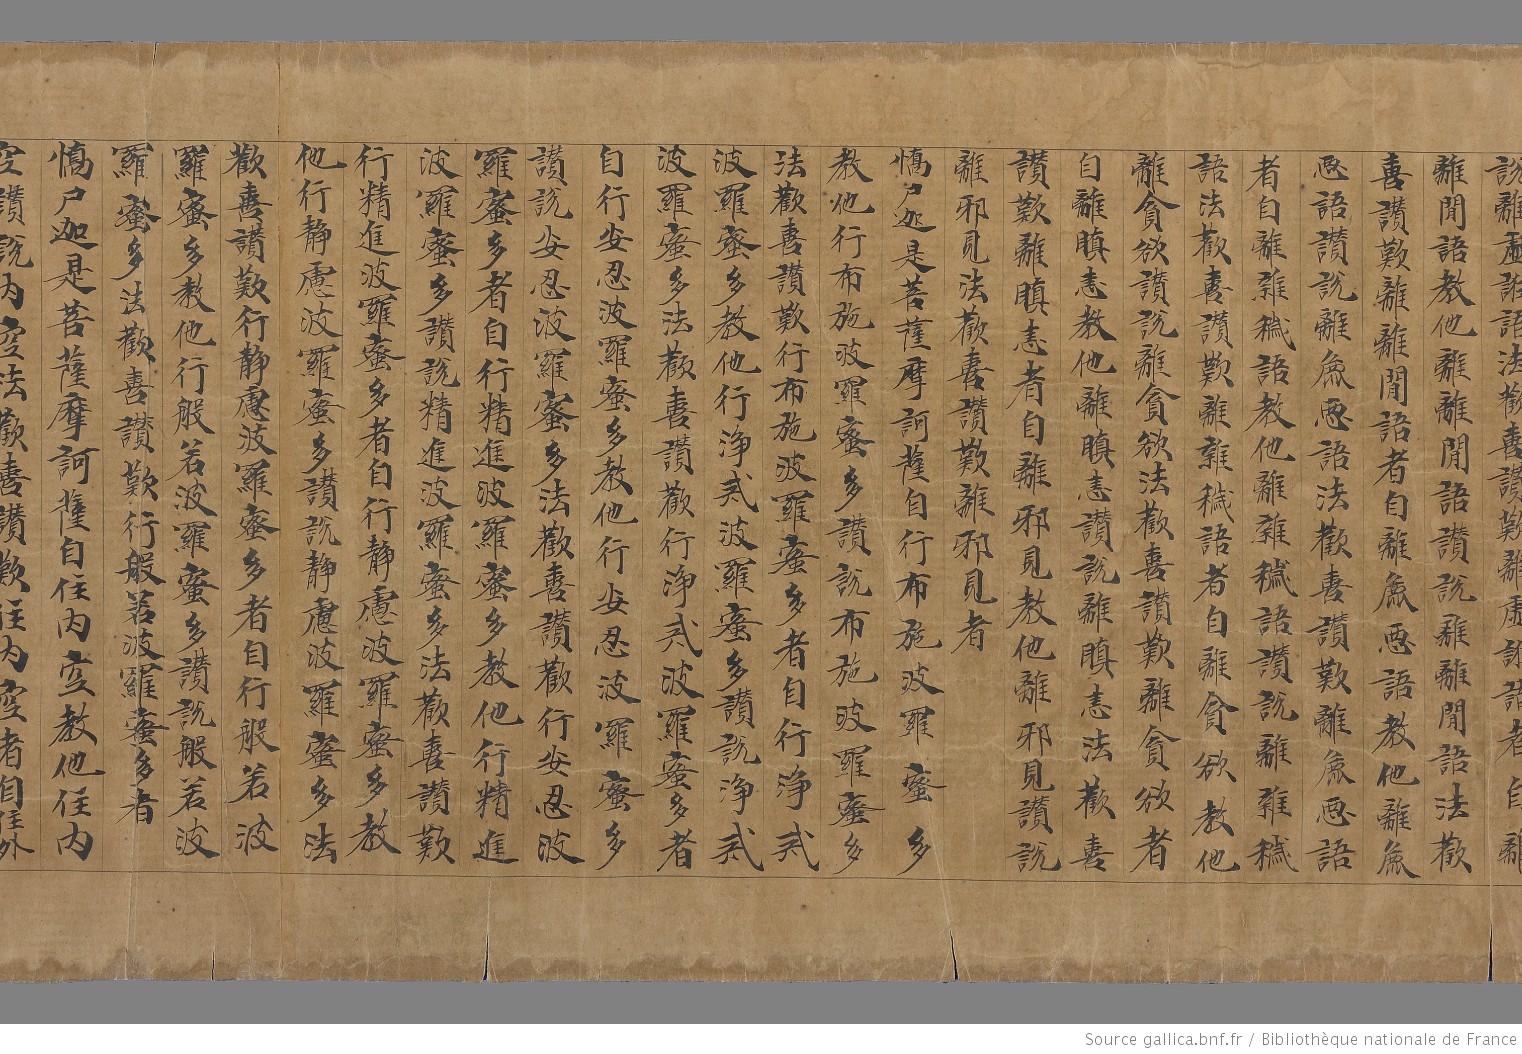 說離虛誑語法歡喜讚歎離虛誑語者自離
離間語教他離離間語讚說離離間語法歡
喜讚歎離離間語者自離麁惡語教他離麁
惡語讚說離麁惡語法歡喜讚歎離麁惡語
者自離雜穢語教他離雜穢語讚說離雜穢
語法歡喜讚歎離雜穢語者自離貪欲教他
離貪欲讚說離貪欲法歡喜讚歎離貪欲者
自離瞋恚教他離瞋恚讚說離瞋恚法歡喜
讚歎離瞋恚者自離邪見教他離邪見讚說
離邪見法歡喜讚歎離邪見者
憍尸迦是菩薩摩訶薩自行布施波羅蜜多
教他行布施波羅蜜多讚說布施波羅蜜多
法歡喜讚歎行布施波羅蜜多者自行淨戒
波羅蜜多教他行淨戒波羅蜜多讚說淨戒
波羅蜜多法歡喜讚歡行淨戒波羅蜜多者
自行安忍波羅蜜多教他行安忍波羅蜜多
讚說安忍波羅蜜多法歡喜讚歡行安忍波
羅蜜多者自行精進波羅蜜多教他行精進
波羅蜜多讚說精進波羅蜜多法歡喜讚歎
行精進波羅蜜多者自行靜慮波羅蜜多教
他行靜慮波羅蜜多讚說靜慮波羅蜜多法
歡喜讚歎行靜慮波羅蜜多者自行般若波
羅蜜多教他行般若波羅蜜多讚說般若波
羅蜜多法歡喜讚歎行般若波羅蜜多者
憍尸迦是菩薩摩訶薩自住內空教他住內
空讚說內空法歡喜讚歎住內空者自住外
Source gallica.bnf.fr / Bibliothèque nationale de France